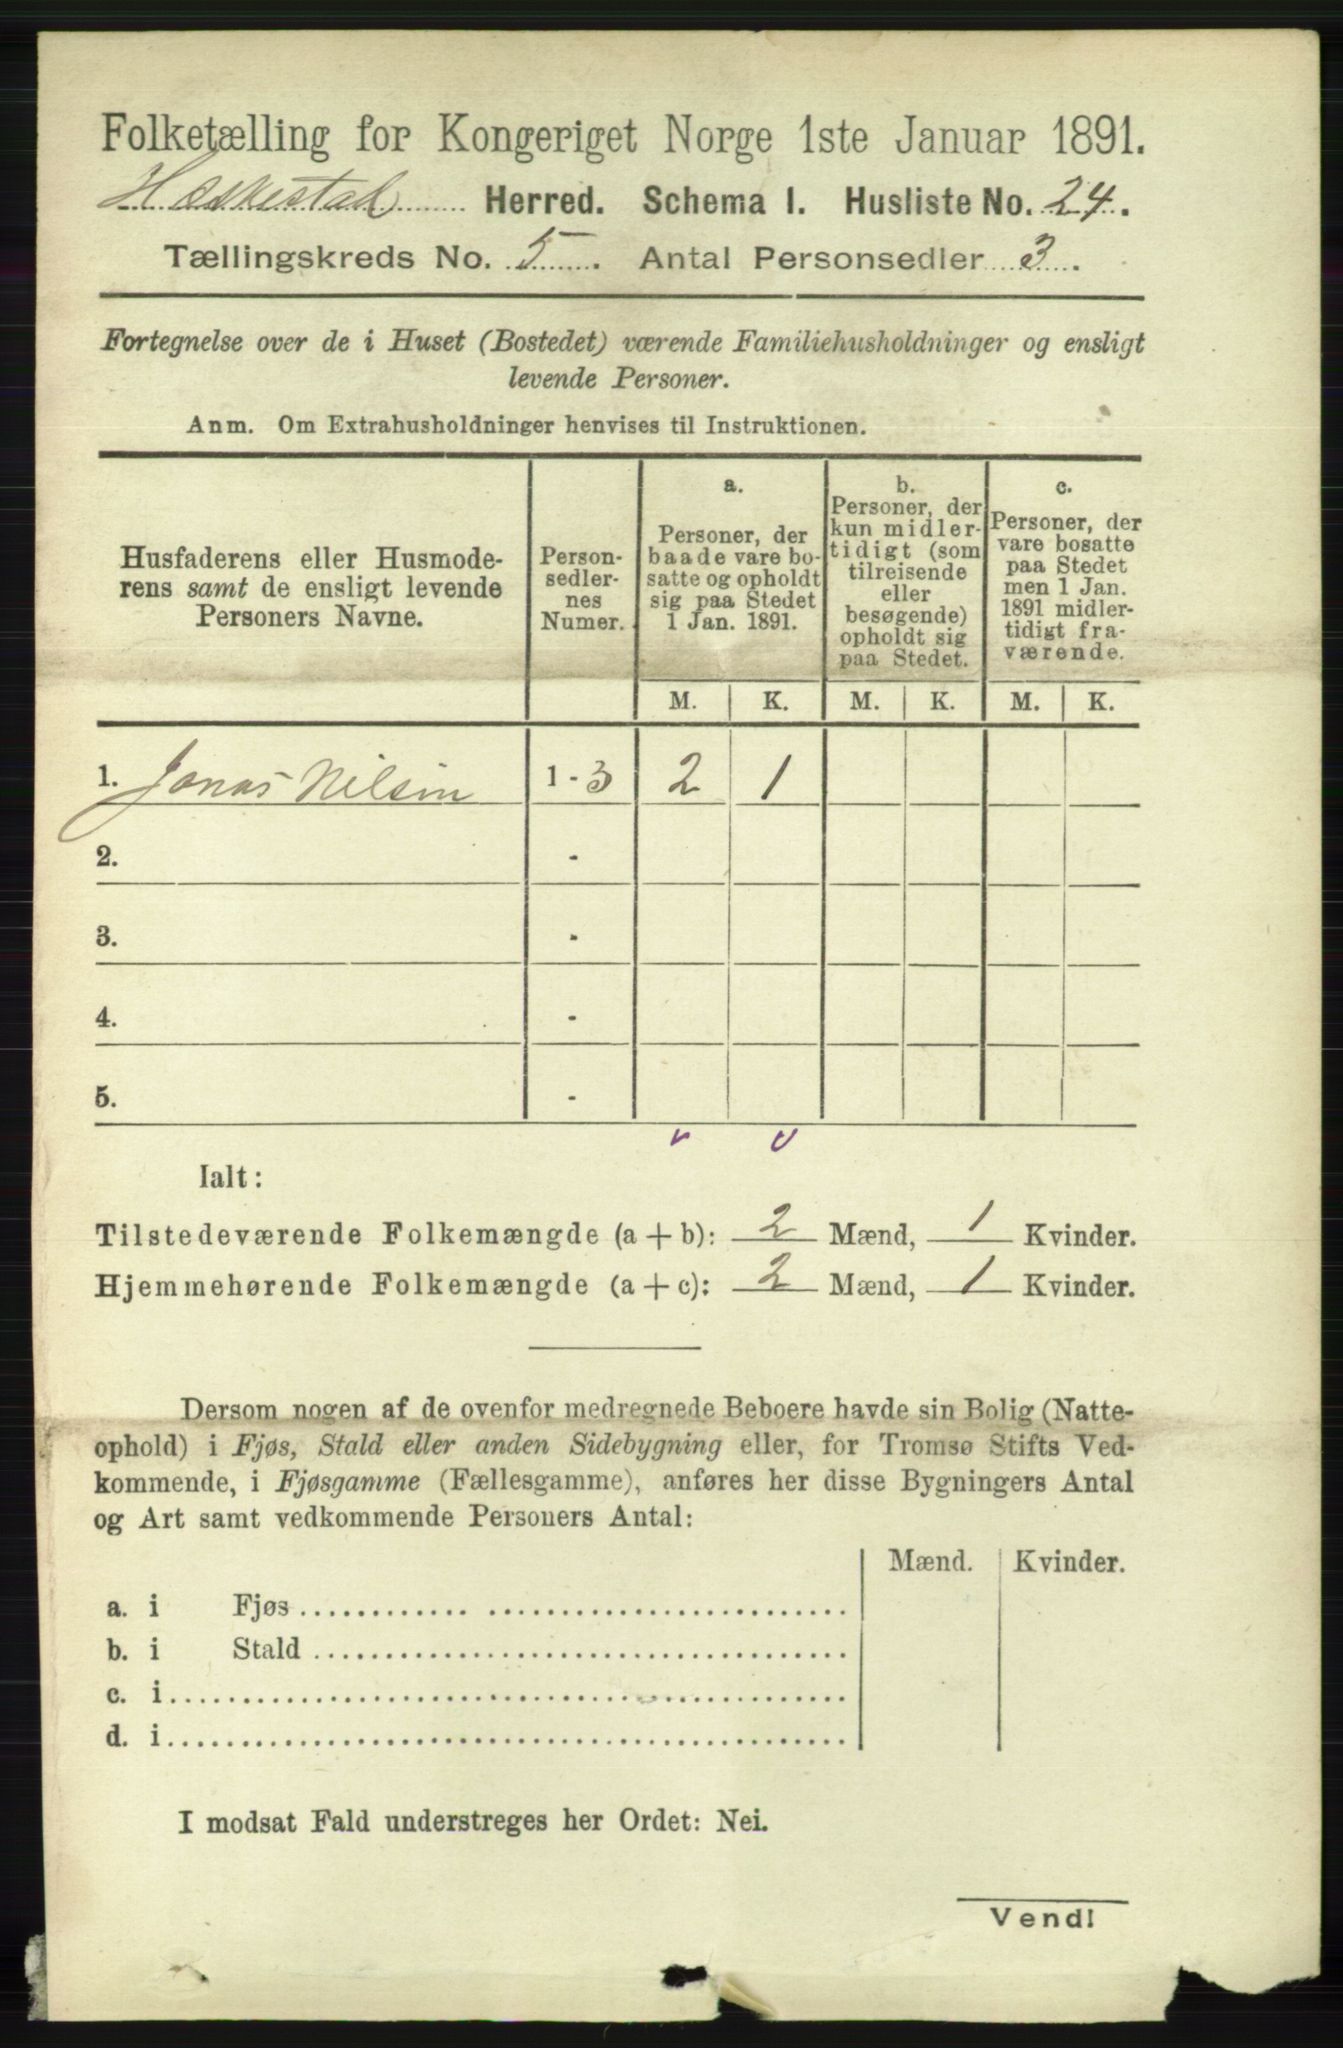 Folketælling for Kongeriget Norge 1ste Januar 1891.
Heskestad Herred. Schema I. Husliste No. 24.
Tællingskreds No. 5. Antal Personsedler 3.
Fortegnelse over de i Huset (Bostedet) værende Familiehusholdninger og ensligt
levende Personer.
Anm. Om Extrahusholdninger henvises til Instruktionen.
Husfaderens eller Husmode-
rens samt de ensligt levende
Personers Navne.
Person-
sedler-
nes
Numer.
a.
Personer, der
baade vare bo-
satte og opholdt
sig paa Stedet
1 Jan. 1891.
b.
Personer, der
kun midler-
tidigt (som
tilreisende
eller
besøgende)
opholdt sig
paa Stedet.
c.
Personer, der
vare bosatte
paa Stedet
men 1 Jan.
1891 midler-
tidigt fra-
værende.
M. K. M. K. M. K.
1. Jonas Nilsen 1 - 3 2 1
2. -
3. -
4. -
5. -
Ialt:
Tilstedeværende Folkemængde (a + b): 2 Mænd, 1 Kvinder.
Hjemmehørende Folkemængde (a + c): 2 Mænd, 1 Kvinder.
Dersom nogen af de ovenfor medregnede Beboere havde sin Bolig (Natte-
ophold) i Fjøs, Stald eller anden Sidebygning eller, for Tromsø Stifts Ved-
kommende, i Fjøsgamme (Fællesgamme), anføres her disse Bygningers Antal
og Art samt vedkommende Personers Antal:
Mænd. Kvinder.
a. i Fjøs
b. i Stald
c. i
d. i
I modsat Fald understreges her Ordet: Nei.
Vend!